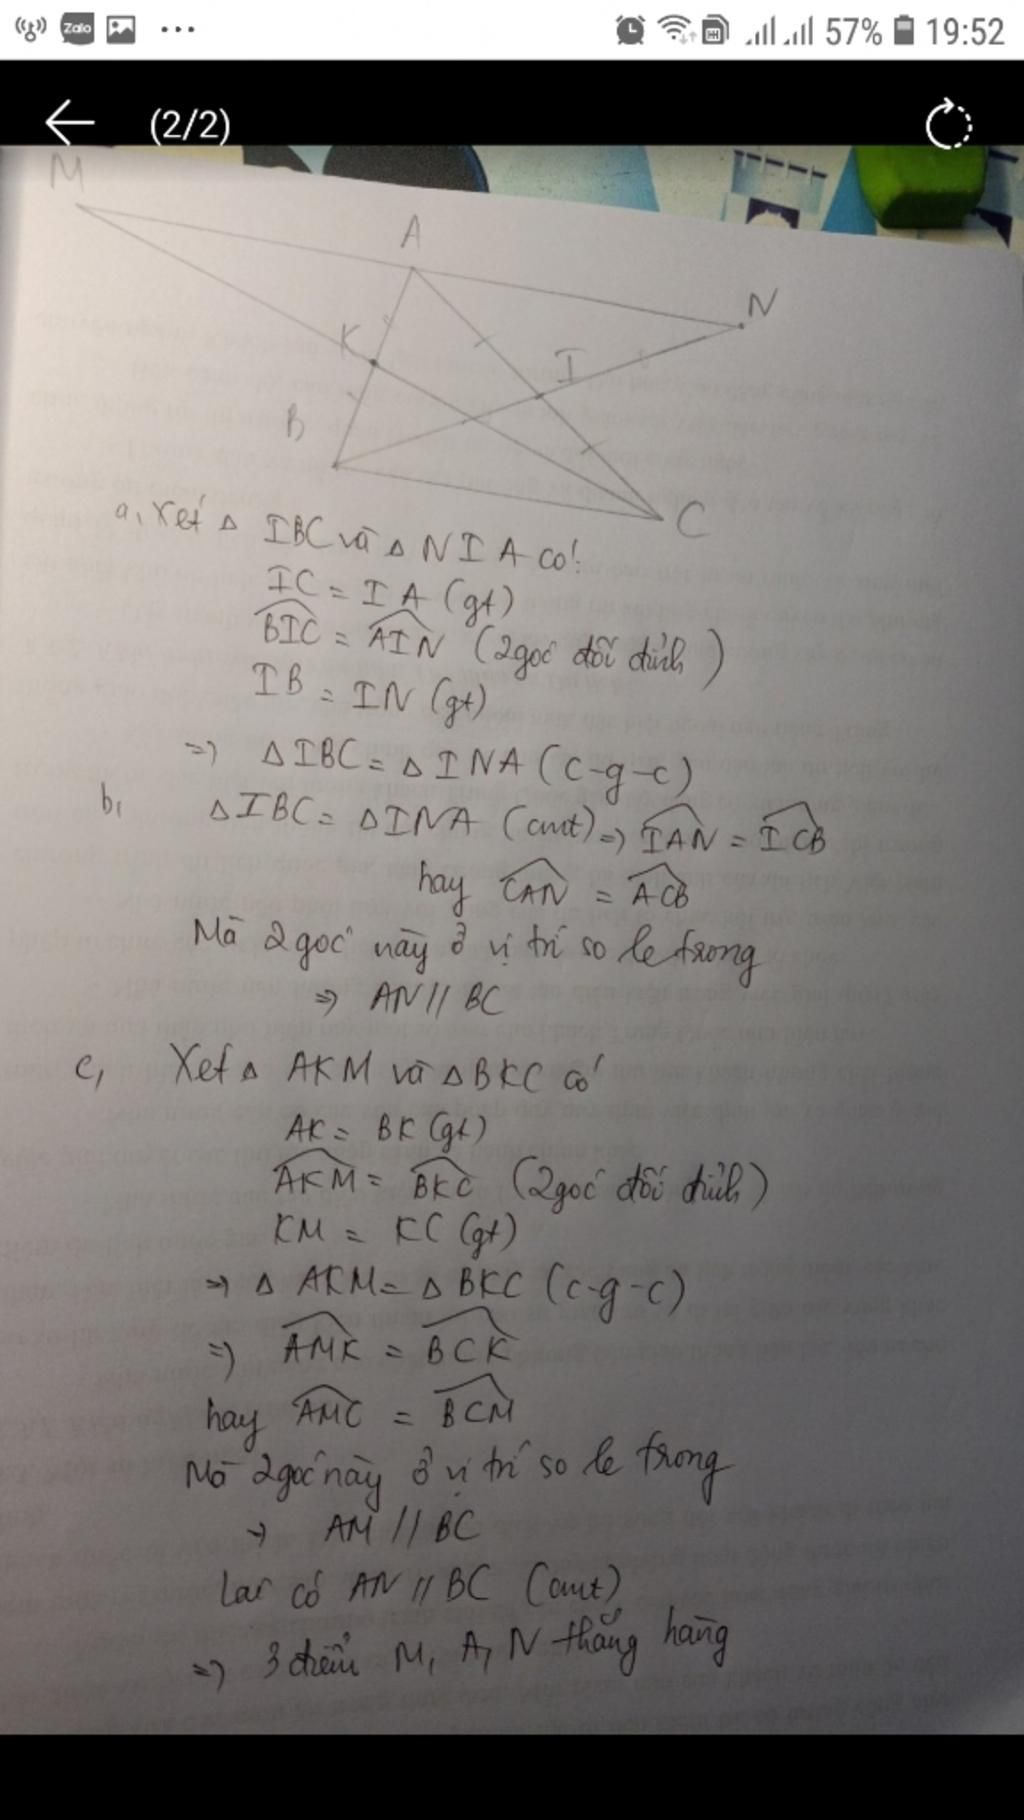 Zalo
57%
19:52
(2/2)
M
A
N
K
I
B
C
a, Xét Δ IBC và Δ NIA có:
IC = IA (gt)
BIC = AIN (2 góc đối đỉnh)
IB = IN (gt)
=> Δ IBC = Δ INA (c-g-c)
b, Δ IBC = Δ INA (cmt) => IAN = ICB
hay CAN = ACB
Mà 2 góc này ở vị trí so le trong
=> AN // BC
c, Xét Δ AKM và Δ BKC có
AK = BK (gt)
AKM = BKC (2 góc đối đỉnh)
KM = KC (gt)
=> Δ AKM = Δ BKC (c-g-c)
=> AMK = BCK
hay AMC = BCM
Mà 2 góc này ở vị trí so le trong
=> AM // BC
Lại có AN // BC (cmt)
=> 3 điểm M, A, N thẳng hàng